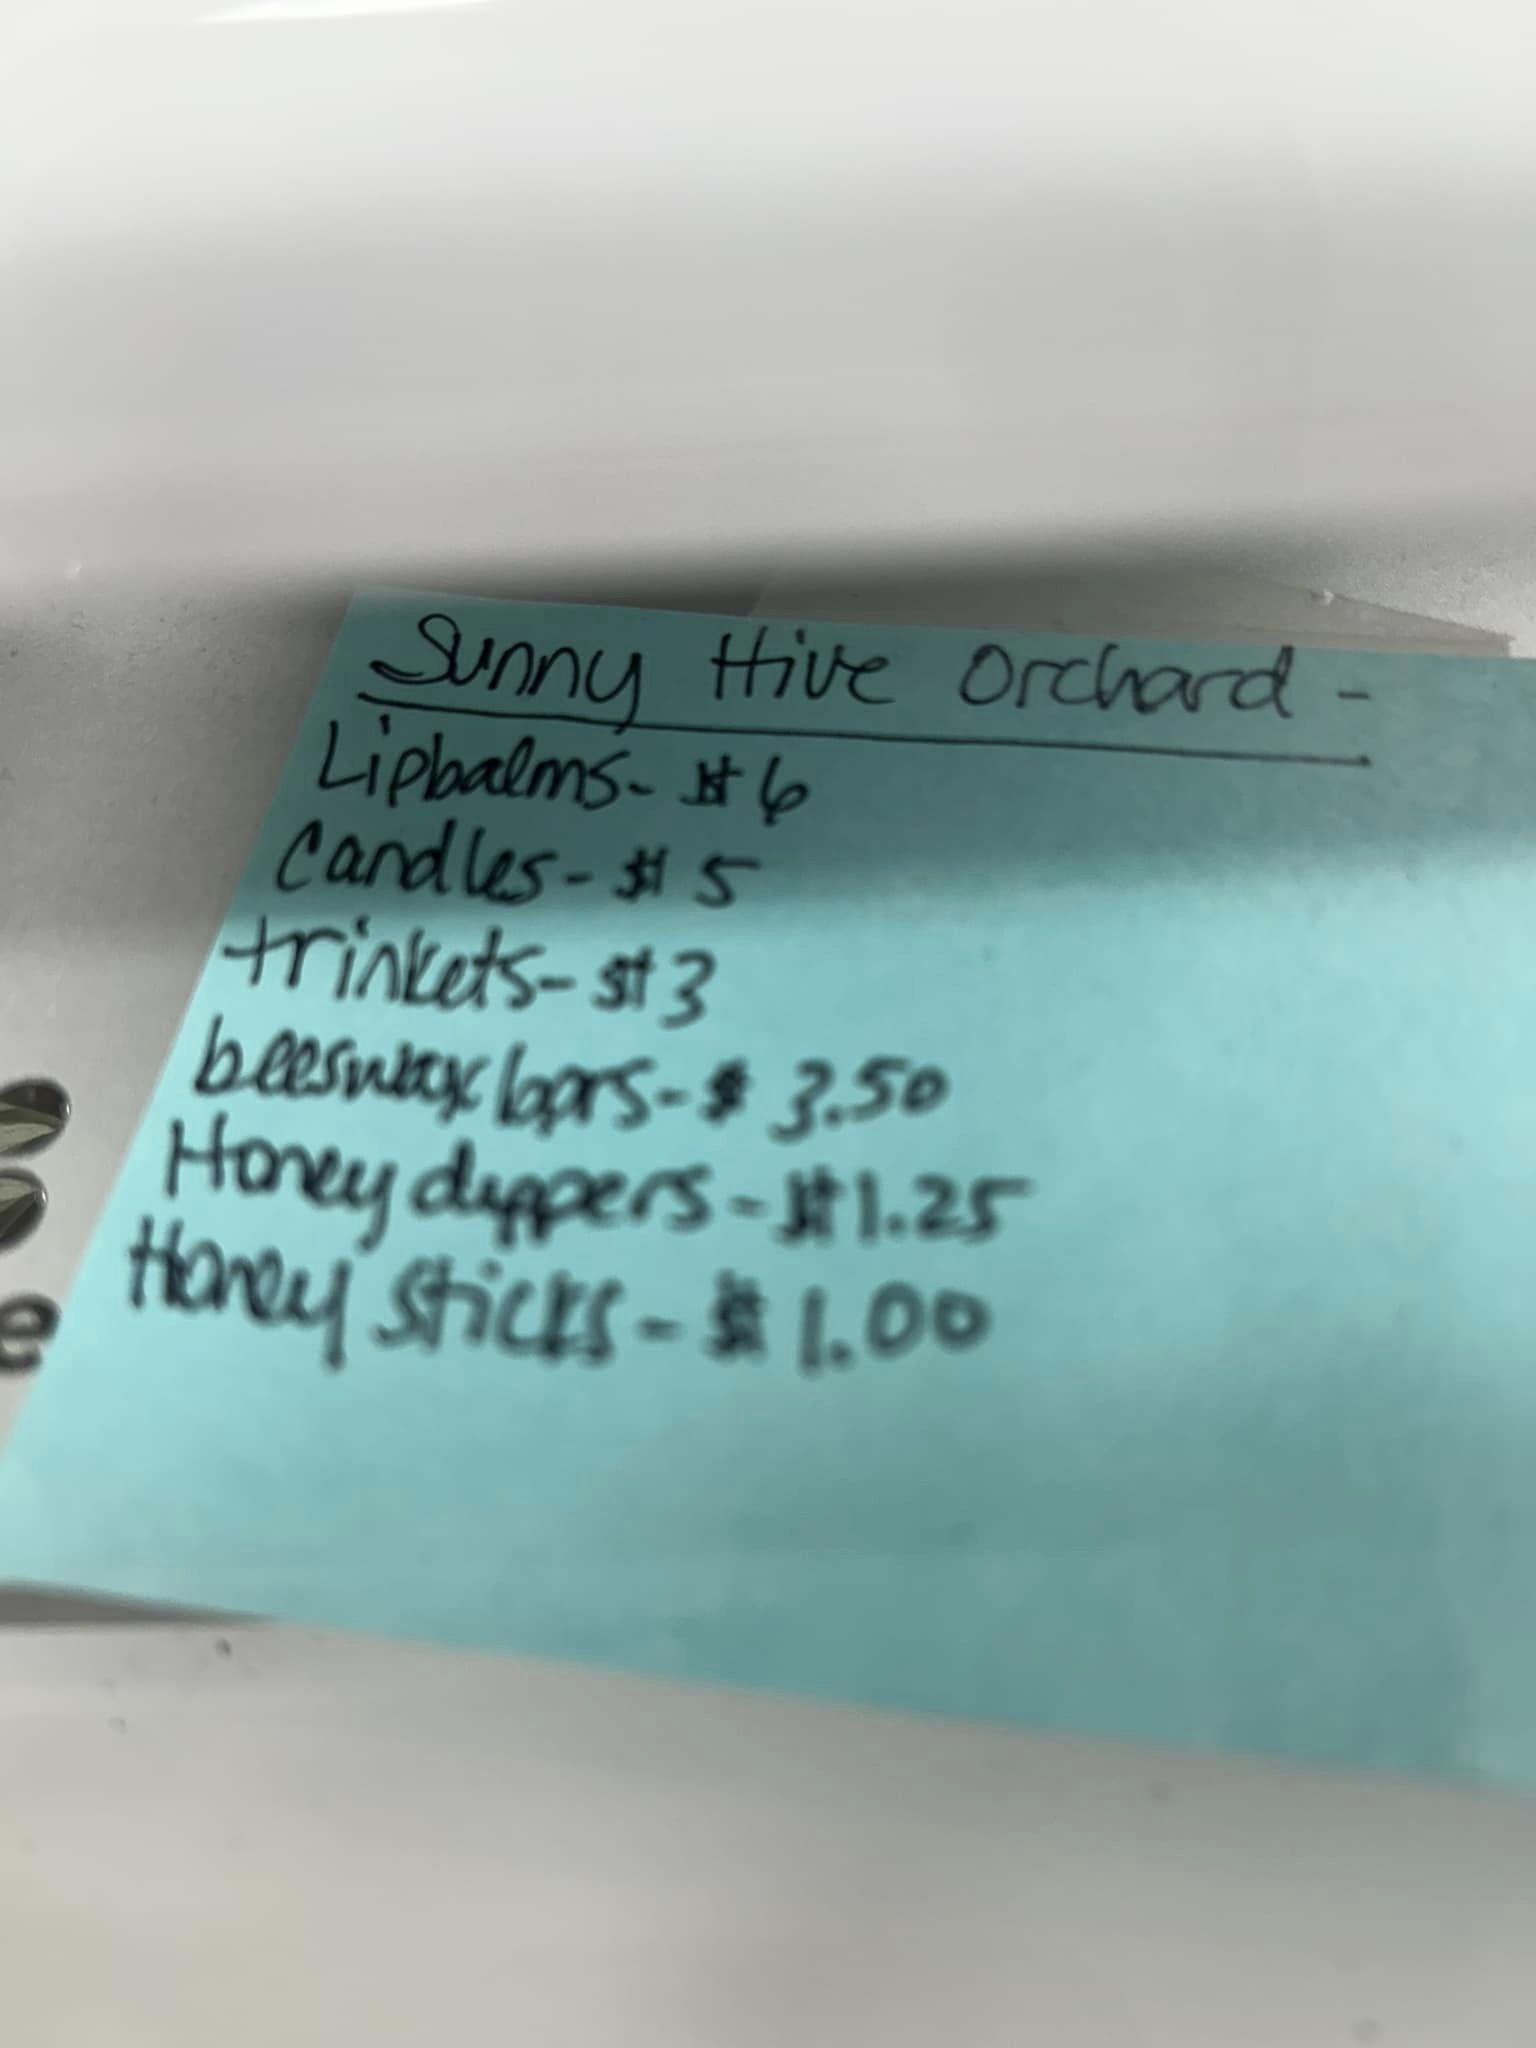 Sunny Hive Orchard -
Lipbalms- $6
Candles- $5
trinkets- $3
beeswax bars- $3.50
Honey dippers- $1.25
Honey sticks- $1.00
e